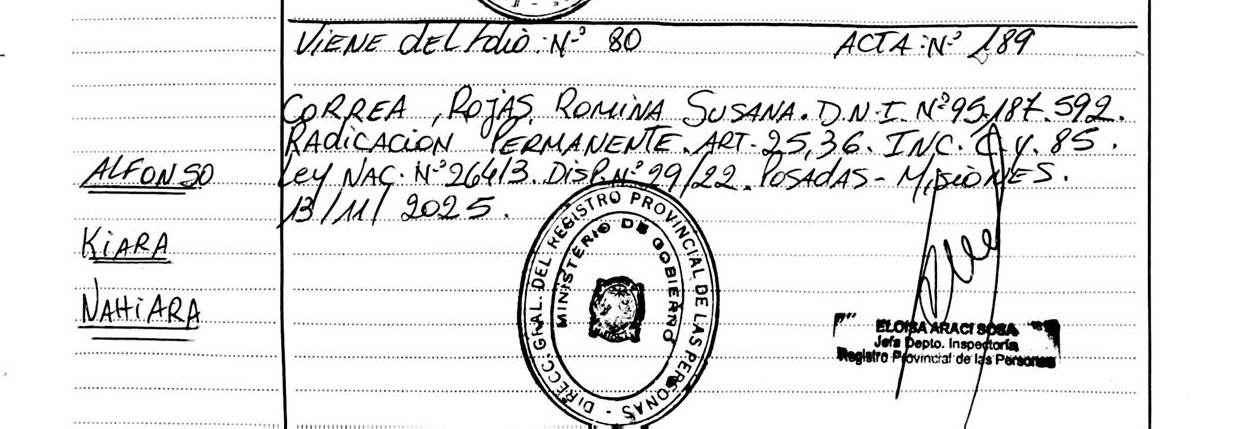 VIENE DEL FOLIO: Nº 80 ACTA: Nº 189
CORREA, ROJAS, ROMINA SUSANA. D.N.I. Nº 95.187.592.
RADICACION PERMANENTE. ART. 25,36. INC. C y. 85.
ALFONSO
Ley NAC. Nº 26413. DISP. Nº 99/22. POSADAS - MISIONES.
13/11/2025.
KIARA
NAHIARA
DIRECC. GRAL. DEL REGISTRO PROVINCIAL DE LAS PERSONAS -
MINISTERIO DE GOBIERNO
ELOISA ARACI SOSA
Jefa Depto. Inspectoría
Registro Provincial de las Personas